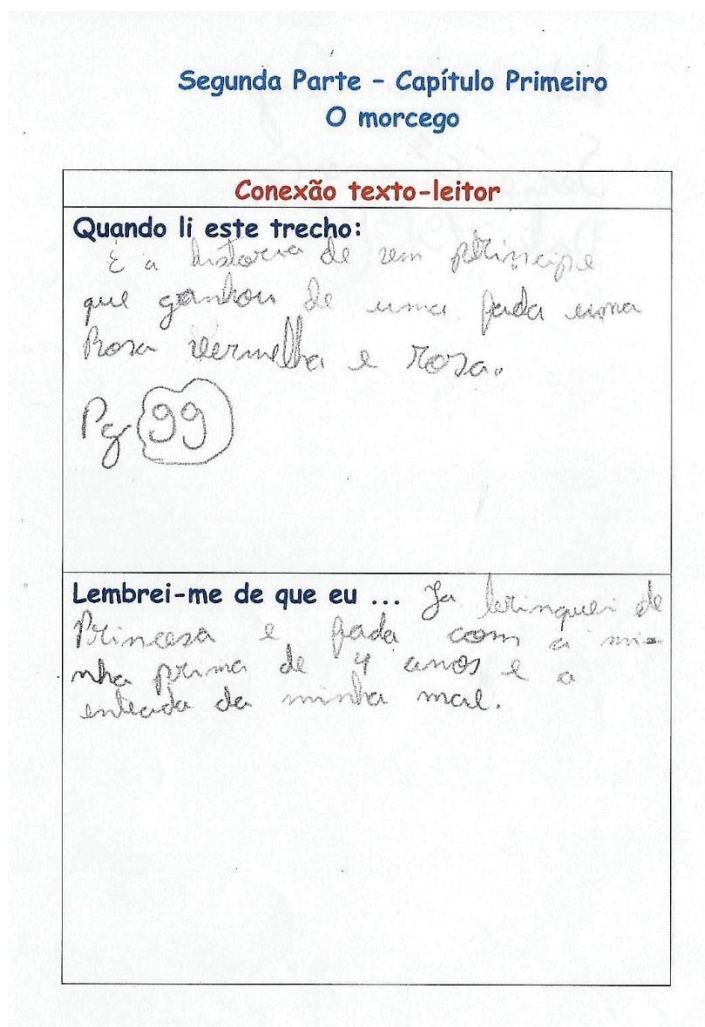 Segunda Parte – Capítulo Primeiro
O morcego
Conexão texto-leitor
Quando li este trecho:
É a historia de um principe
que ganhou de uma fada uma
Rosa vermelha e rosa.
Pg 99
Lembrei-me de que eu ... Ja brinquei de
Princesa e fada com a mi-
nha prima de 4 anos e a
enteada da minha mãe.